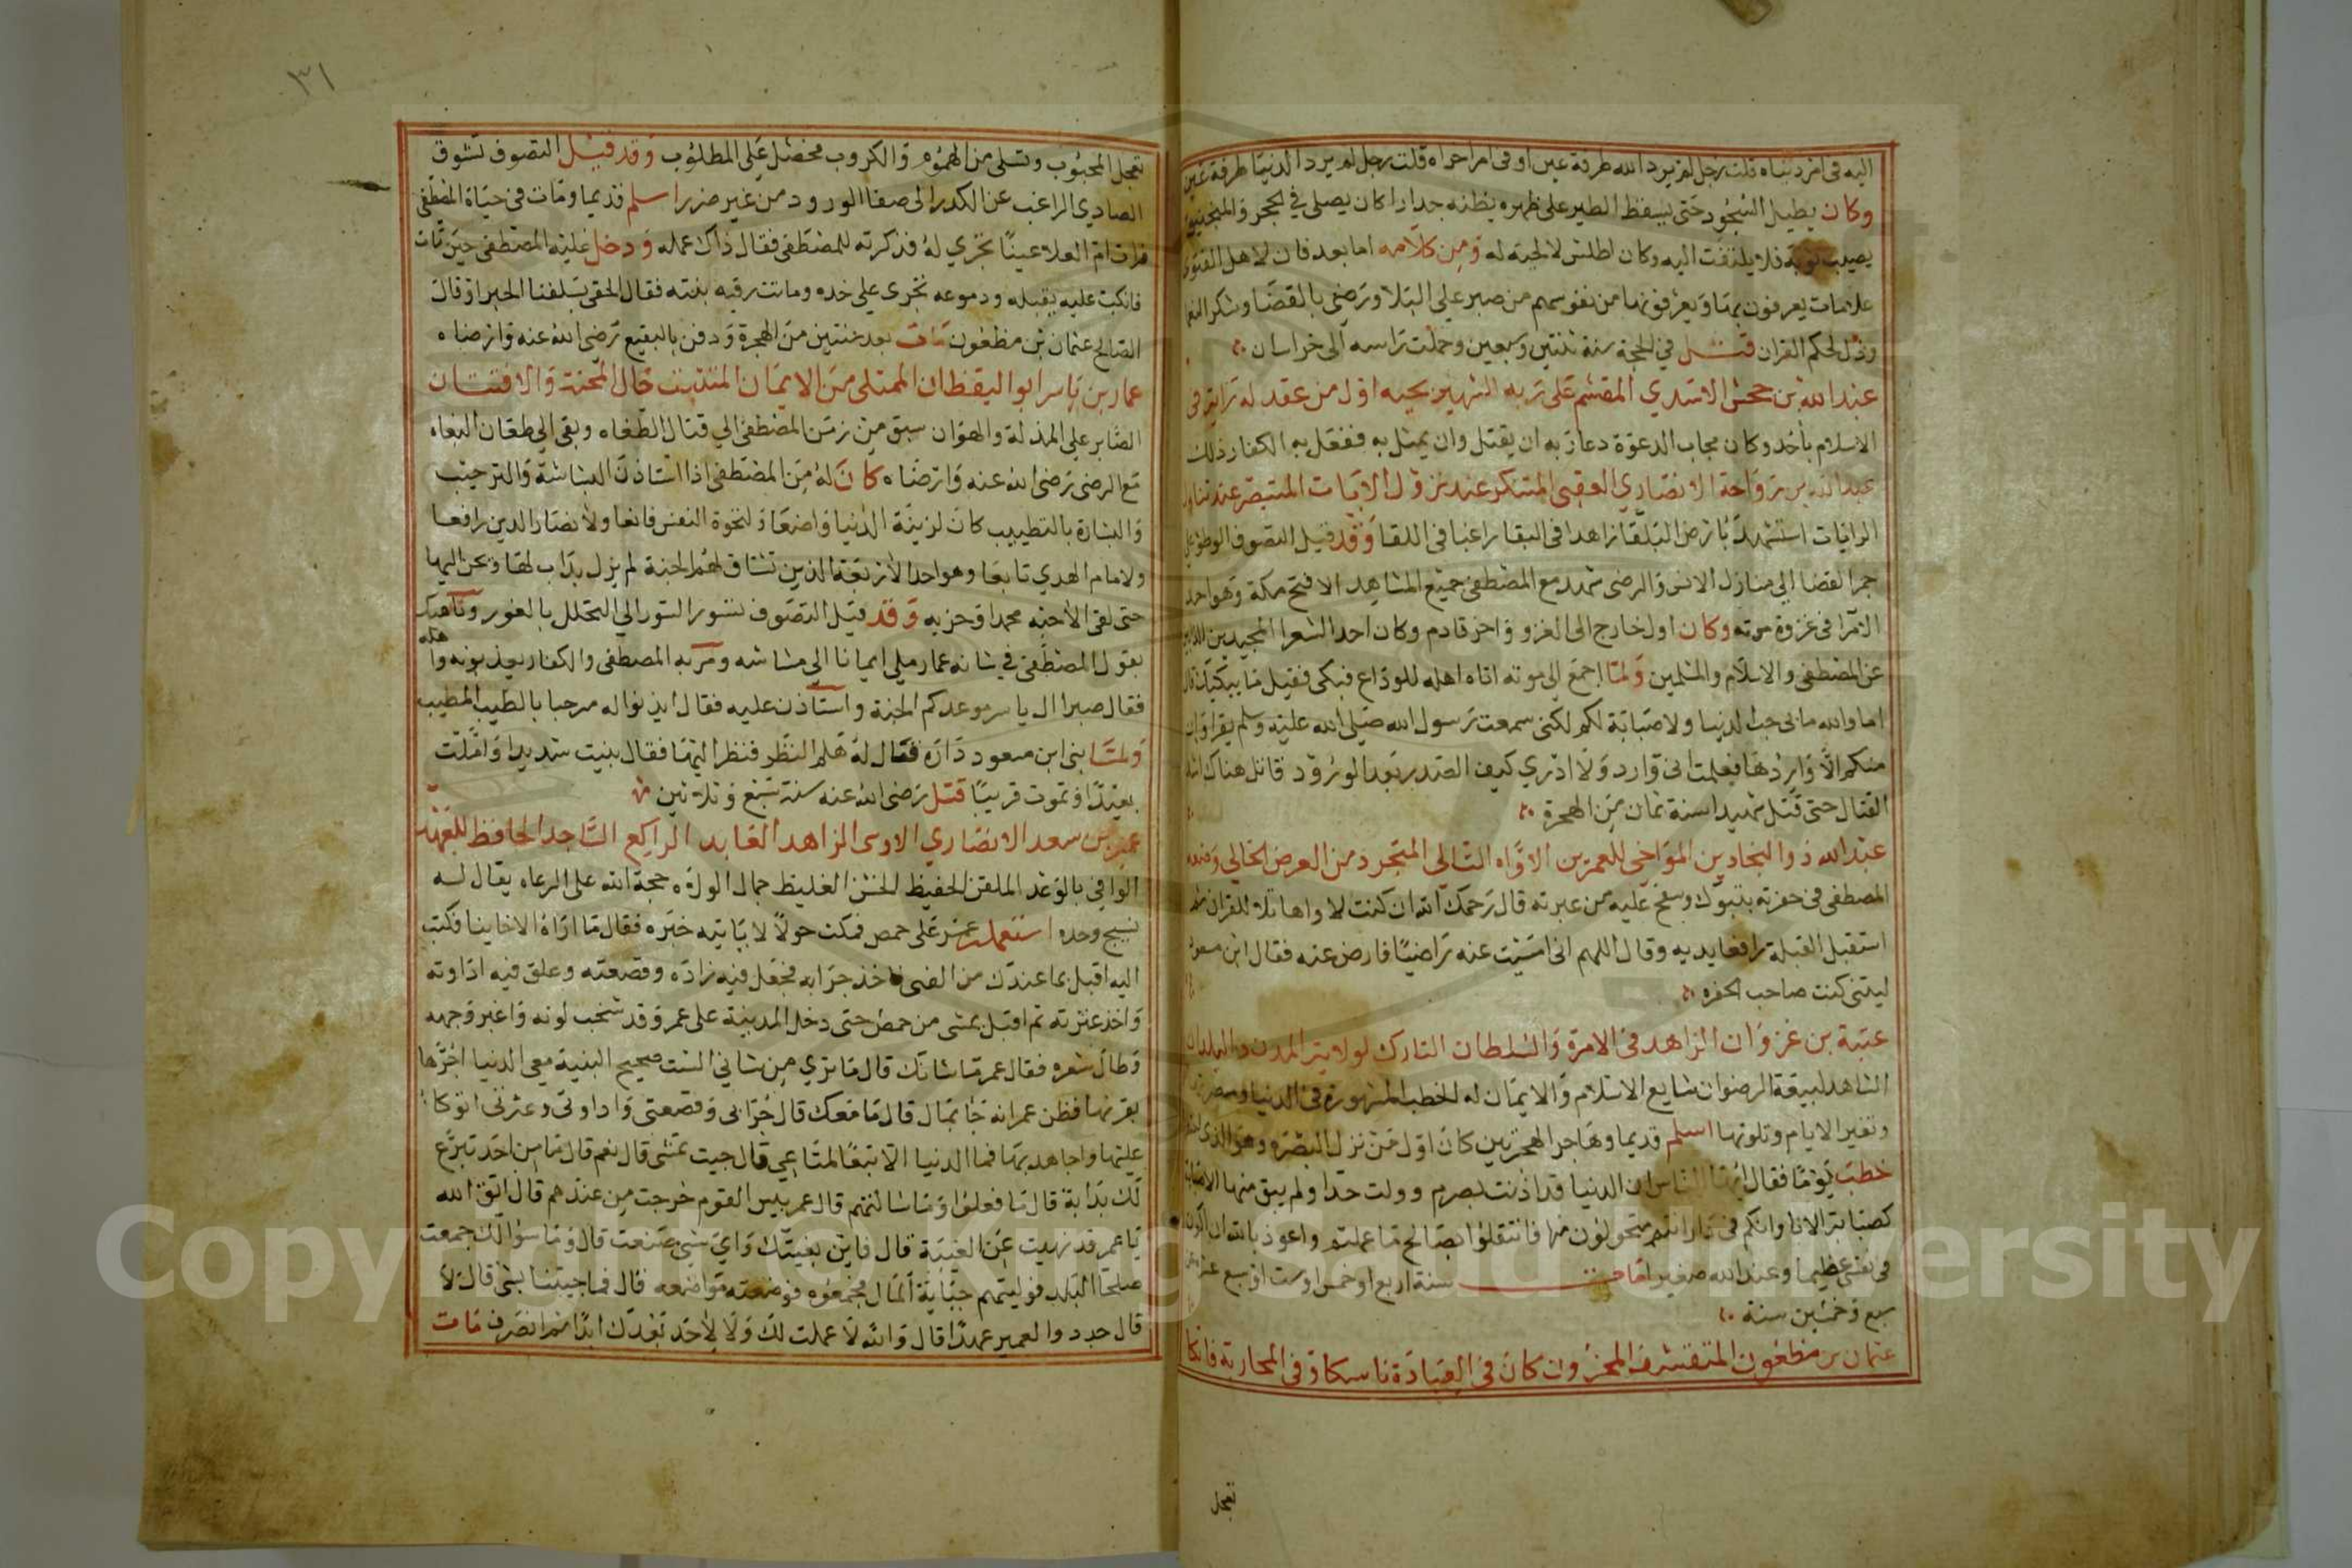 اليه في امر دنياه قلت رجل لم يرد الله طرفة عين او في امر اخراه قلت رجل لم يرد الدنيا طرفة عين
وكان يطيل السجود حتى يسقط الطير على ظهره يظنه جدارا كان يصلي في الحجر والمنجنيق
يصيب ثوبه فلا يلتفت اليه وكان اطلس لا لحية له ومن كلامه اما بعد فان لاهل التقوى
علامات يعرفون بها ويعرفونها من نفوسهم من صبر على البلا ورضي بالقضا وشكر النعم
وذل لحكم القران قتل في الحجة سنة ثنتين وسبعين وحملت راسه الى خراسان
عبد الله بن جحش الاسدي المقسم على ربه الشهير بحبه اول من عقد له راية في
الاسلام بأحد وكان مجاب الدعوة دعا ربه ان يقتل وان يمثل به ففعل به الكفار ذلك
عبد الله بن رواحة الانصاري العقبى المتفكر عند نزول الايات المتبصر عند تناول
الرايات استشهد بارض البلقا زاهدا في البقا راغبا في اللقا وقد قيل التصوف الوطؤ على
جمر الغضا الي منازل الانس والرضى شهد مع المصطفى جميع المشاهد الا فتح مكة وهو احد
الامرا في غزوة موته وكان اول خارج الى الغزو واخر قادم وكان احد الشعرا المجيدين الذابين
عن المصطفى والاسلام والمسلمين ولما اجمع الى موته اتاه اهله للوداع فبكى فقيل ما يبكيك قال
اما والله ما بي حب الدنيا ولا صبابة لكم لكني سمعت رسول الله صلى الله عليه وسلم يقرا وان
منكم الا واردها فعلمت اني وارد ولا ادري كيف الصدر بعد الورود قاتل هناك اشد
القتال حتى قتل شهيدا سنة ثمان من الهجرة
عبد الله ذو البجادين المواخي للعمرين الاواه التالي المتجرد من العرض الخالي وضعه
المصطفى في حفرته بتبوك وسفح عليه من عبرته قال رحمك الله ان كنت لاواها تلا للقران ثم
استقبل القبلة رافعا يديه وقال اللهم اني امسيت عنه راضيا فارض عنه فقال ابن مسعود
ليتني كنت صاحب الحفره
عتبة بن غزوان الزاهد في الامرة والسلطان التارك لولاية المدن والبلدان
الشاهد لبيعة الرضوان شايع الاسلام والايمان له الخطب المشهورة في الدنيا وتصرمها
وتغير الايام وتلونها اسلم قديما وهاجر الهجرتين كان اول من نزل البصره وهو الذي
خطب يوما فقال ايها الناس ان الدنيا قد اذنت بصرم وولت حذا ولم يبق منها الا صبابة
كصبابة الانا وانكم في دار انتم متحولون منها فانتقلوا بصالح ما عملتم واعوذ بالله ان اكون
في نفسي عظيما وعند الله صغيرا مات سنة اربع او خمس او ست او سبع عشرة عن
سبع وخمسين سنة
عثمان بن مظعون المتقشف المحزون كان في العبادة ناسكا وفي المحاربة فاتكا
تعجل
٣١
تعجل المحبوب وتسلى من الهموم والكروب فحصل على المطلوب وقد قيل التصوف تشوق
الصادي الراغب عن الكدر الى صفا الورود من غير ضرر اسلم قديما ومات في حياة المصطفى
فرات ام العلا عينا تجري له فذكرته للمصطفى فقال ذاك عمله ودخل عليه المصطفى حين مات
فانكبت عليه يقبله ودموعه تجرى على خده وماتت رقيه بنته فقال الحقى بسلفنا الخير او قال
الصالح عثمان بن مظعون مات بعد سنتين من الهجرة ودفن بالبقيع رضي الله عنه وارضاه
عمار بن ياسر ابو اليقظان الممتلى من الايمان المتثبت حال المحنة والافتتان
الصابر على المذلة والهوان سبق من زمن المصطفى الي قتال الطغاه وبقى الي طعان البغاه
مع الرضى رضي الله عنه وارضاه كان له من المصطفى اذا استاذن البشاشة والترحيب
والبشارة بالتطييب كان لزينة الدنيا واضعا ولنخوة النفس قامعا ولانصار الدين رافعا
ولامام الهدي تابعا وهو احد الاربعة الذين تشتاق لهم الجنة لم يزل يداب لها ويحن اليها
حتى لقى الاحبه محمدا وحزبه وقد قيل التصوف تسور السور الي التحلل بالغور وناهيك
بقول المصطفى في شانه عمار ملى ايمانا الي مشاشه ومر به المصطفى والكفار يعذبونه واهله
فقال صبرا ال ياسر موعدكم الجنة واستاذن عليه فقال ايذنوا له مرحبا بالطيب المطيب
ولما بنى ابن مسعود داره فقال له هلم النظر فنظر اليها فقال بنيت شديدا واملت
بعيدا وتموت قريبا قتل رضي الله عنه سنة سبع وثلاثين
عمير بن سعد الانصاري الاوسي الزاهد العابد الراكع الساجد الحافظ للعهد
الوافي بالوعد الملقن الحفيظ الخشن الغليظ جمال الولاه حجة الله على الرعاه يقال له
نسيج وحده استعمله عمر على حمص فمكث حولا لا ياتيه خبره فقال ما اراه الا خاينا فكتب
اليه اقبل بما عندك من الفى فاخذ جرابه فجعل فيه زاده وقصعته وعلق فيه اداوته
واخذ عنزته ثم اقبل يمشى من حمص حتى دخل المدينة على عمر وقد شحب لونه واغبر وجهه
وطال شعره فقال عمر ما شانك قال ما تري من شاني الست صحيح البنية معي الدنيا اجرها
بقرنها فظن عمر انه جا بمال قال ما معك قال جرابي وقصعتي واداوتي وعنزتي اتوكا
عليها واجاهد بها فما الدنيا الا تبعا لمتاعي قال جيت تمشى قال نعم قال ما من احد تبرع
لك بدابة قال ما فعلوا وما سالتهم قال عمر بيس القوم خرجت من عندهم قال اتق الله
يا عمر قد نهيت عن الغيبة قال فاين بغيتك واي شيء صنعت قال وما سؤالك جمعت
صلحا البلد فوليتهم جباية المال فجمعوه فوضعته مواضعه قال فما جيتنا بشى قال لا
قال جددوا لعمير عهدا قال والله لا عملت لك ولا لاحد بعدك ابدا ثم انصرف مات
Copyright © King Saud University